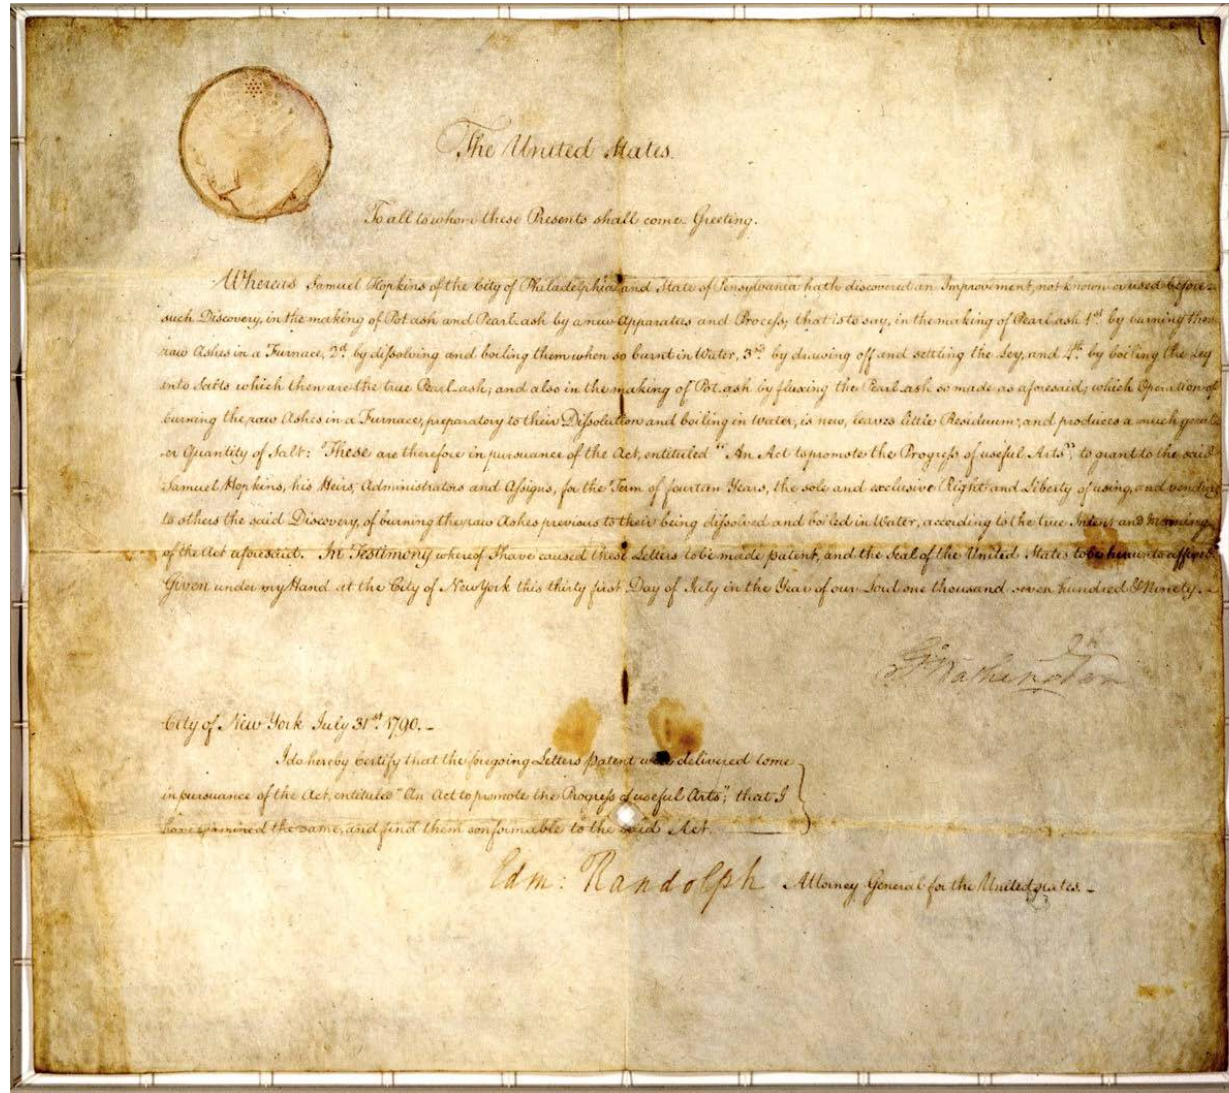 The United States.
To all to whom these Presents shall come. Greeting.
Whereas Samuel Hopkins of the City of Philadelphia and State of Pensylvania hath discovered an Improvement, not known or used before
such Discovery, in the making of Pot ash and Pearl-ash by a new Apparatus and Process; that is to say, in the making of Pearl-ash 1st by burning the
raw Ashes in a Furnace, 2d by dissolving and boiling them when so burnt in Water, 3rd by drawing off and settling the Ley, and 4th by boiling the Ley
into Salts which then are the true Pearl-ash; and also in the making of Pot-ash by fluxing the Pearl-ash so made as aforesaid; which Operation of
burning the raw Ashes in a Furnace, preparatory to their Dissolution and boiling in Water, is new, leaves little Residuum; and produces a much great
er Quantity of Salt: These are therefore in pursuance of the Act, entituled "An Act to promote the Progress of useful Arts", to grant to the said
Samuel Hopkins, his Heirs, Administrators and Assigns, for the Term of fourteen Years, the sole and exclusive Right and Liberty of using, and vending
to others the said Discovery, of burning the raw Ashes previous to their being dissolved and boiled in Water, according to the true Intent and Meaning
of the Act aforesaid. In Testimony whereof I have caused these Letters to be made patent, and the Seal of the United States to be hereunto affixed
Given under my Hand at the City of New York this thirty first Day of July in the Year of our Lord one thousand seven hundred & Ninety.
Go Washington
City of New York July 31st 1790.
I do hereby Certify that the foregoing Letters patent were delivered to me
in pursuance of the Act, entituled "An Act to promote the Progress of useful Arts"; that I
have examined the same, and find them conformable to the said Act.
Edm: Randolph Attorney General for the United States.